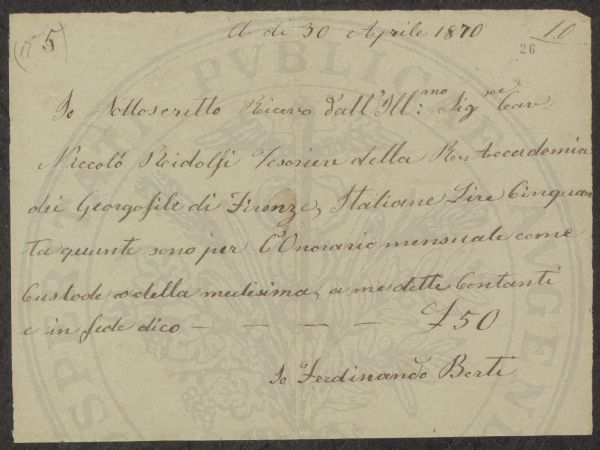 (N° 5)
A dì 30 Aprile 1870
10
26
Io Sottoscritto Ricevo dall'Ill:mo Sig.re Cav
Niccolò Ridolfi Tesoriere della R. Accademia
dei Georgofili di Firenze, Italiane Lire Cinquan
ta quante sono per l'Onorario mensuale come
Custode della medesima, a me dette Contanti
e in fede dico — — — — £ 50
Io Ferdinando Berti
PROSPERITATI PUBLICAE AUGENDAE